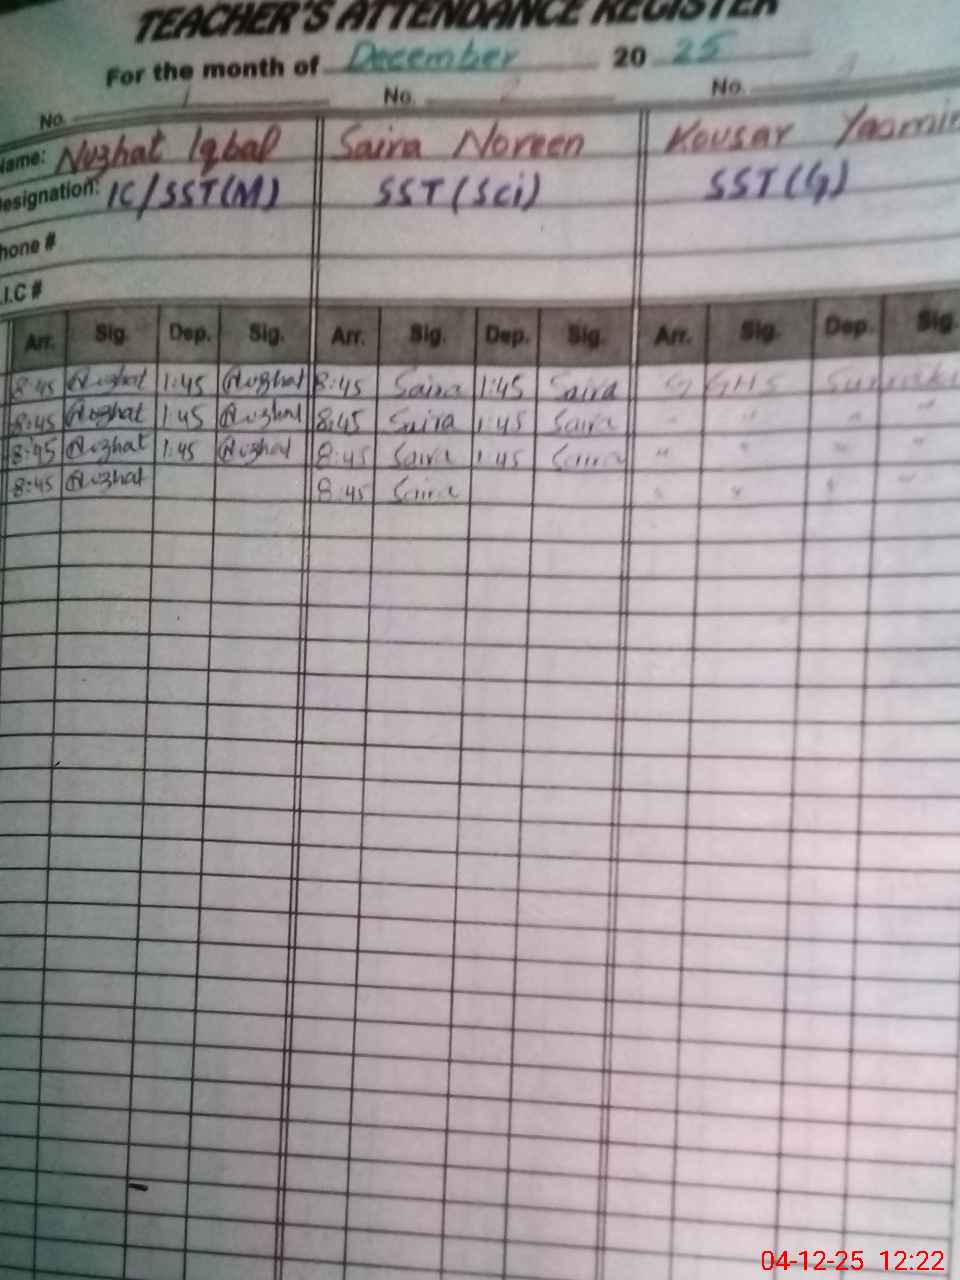 TEACHER'S ATTENDANCE REGISTER
For the month of December 2025
No. 1 No. 2 No. 3
Name: Nuzhat Iqbal Saira Noreen Kousar Yasmin
Designation: IC/SST(M) SST(Sci) SST(G)
Phone #
I.C #
Arr. Sig. Dep. Sig. Arr. Sig. Dep. Sig. Arr. Sig. Dep. Sig.
8:45 Nuzhat 1:45 Nuzhat 8:45 Saira 1:45 Saira GGHS
8:45 Nuzhat 1:45 Nuzhat 8:45 Saira 1:45 Saira " " " "
8:45 Nuzhat 1:45 Nuzhat 8:45 Saira 1:45 Saira " " " "
8:45 Nuzhat 8:45 Saira " " " "
04-12-25 12:22